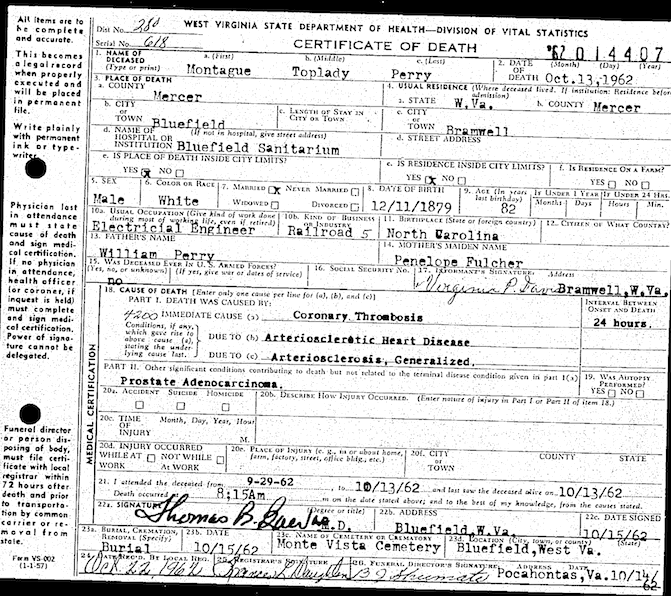 WEST VIRGINIA STATE DEPARTMENT OF HEALTH—DIVISION OF VITAL STATISTICS
Dist No. 280
Serial No. 618
CERTIFICATE OF DEATH
62 014407
All items are to be complete and accurate.
This becomes a legal record when properly executed and will be placed in permanent file.
Write plainly with permanent ink or typewriter.
Physician last in attendance must state cause of death and sign medical certification. If no physician in attendance, health officer (or coroner, if inquest is held) must complete and sign medical certification. Power of signature cannot be delegated.
Funeral director or person disposing of body, must file certificate with local registrar within 72 hours after death and prior to transportation by common carrier or removal from state.
Form VS-002
(1-1-57)
1. NAME OF DECEASED (Type or print) a. (First) b. (Middle) c. (Last)
Montague Toplady Perry
2. DATE OF DEATH (Month) (Day) (Year)
Oct.13,1962
3. PLACE OF DEATH
a. COUNTY
Mercer
4. USUAL RESIDENCE (Where deceased lived. If institution: Residence before admission)
a. STATE W.Va. b. COUNTY Mercer
b. CITY OR TOWN Bluefield
c. LENGTH OF STAY IN CITY OR TOWN
c. CITY OR TOWN Bramwell
d. NAME OF HOSPITAL OR INSTITUTION (If not in hospital, give street address)
Bluefield Sanitarium
d. STREET ADDRESS
e. IS PLACE OF DEATH INSIDE CITY LIMITS?
YES X NO
e. IS RESIDENCE INSIDE CITY LIMITS?
YES X NO
f. IS RESIDENCE ON A FARM?
YES NO
5. SEX
Male
6. COLOR OR RACE
White
7. MARRIED X NEVER MARRIED
WIDOWED DIVORCED
8. DATE OF BIRTH
12/11/1879
9. AGE (In years last birthday)
82
IF UNDER 1 YEAR Months Days
IF UNDER 24 HRS. Hours Min.
10a. USUAL OCCUPATION (Give kind of work done during most of working life, even if retired)
Electricial Engineer
10b. KIND OF BUSINESS OR INDUSTRY
Railroad 5
11. BIRTHPLACE (State or foreign country)
North Carolina
12. CITIZEN OF WHAT COUNTRY?
13. FATHER'S NAME
William Perry
14. MOTHER'S MAIDEN NAME
Penelope Fulcher
15. WAS DECEASED EVER IN U.S. ARMED FORCES?
(Yes, no, or unknown) (If yes, give war or dates of service)
no
16. SOCIAL SECURITY NO.
17. INFORMANT'S SIGNATURE Address
Virginia P. Davis Bramwell,W.Va.
MEDICAL CERTIFICATION
18. CAUSE OF DEATH (Enter only one cause per line for (a), (b), and (c))
PART I. DEATH WAS CAUSED BY:
INTERVAL BETWEEN ONSET AND DEATH
4200 IMMEDIATE CAUSE (a) Coronary Thrombosis
24 hours.
Conditions, if any, which gave rise to above cause (a), stating the underlying cause last.
DUE TO (b) Arteriosclerotic Heart Disease
DUE TO (c) Arteriosclerosis, Generalized.
PART II. Other significant conditions contributing to death but not related to the terminal disease condition given in part 1(a)
Prostate Adenocarcinoma.
19. WAS AUTOPSY PERFORMED?
YES NO
20a. ACCIDENT SUICIDE HOMICIDE
20b. DESCRIBE HOW INJURY OCCURRED. (Enter nature of injury in Part I or Part II of item 18.)
20c. TIME OF INJURY Month, Day, Year, Hour
M.
20d. INJURY OCCURRED
WHILE AT WORK NOT WHILE AT WORK
20e. PLACE OF INJURY (e. g., in or about home, farm, factory, street, office bldg., etc.)
20f. CITY OR TOWN COUNTY STATE
21. I attended the deceased from 9-29-62 to 10/13/62 and last saw the deceased alive on 10/13/62
Death occurred 8:15Am m on the date stated above; and to the best of my knowledge, from the causes stated.
22a. SIGNATURE (Degree or title)
Thomas B. M.D.
22b. ADDRESS
Bluefield,W.Va.
22c. DATE SIGNED
10/15/62
23a. BURIAL, CREMATION, REMOVAL (Specify)
Burial
23b. DATE
10/15/62
23c. NAME OF CEMETERY OR CREMATORY
Monte Vista Cemetery
23d. LOCATION (City, town, or county) (State)
Bluefield,West Va.
24. DATE REC'D. BY LOCAL REG.
Oct 22, 1962
25. REGISTRAR'S SIGNATURE
26. FUNERAL DIRECTOR'S SIGNATURE ADDRESS DATE
Pocahontas,Va.10/14/
62